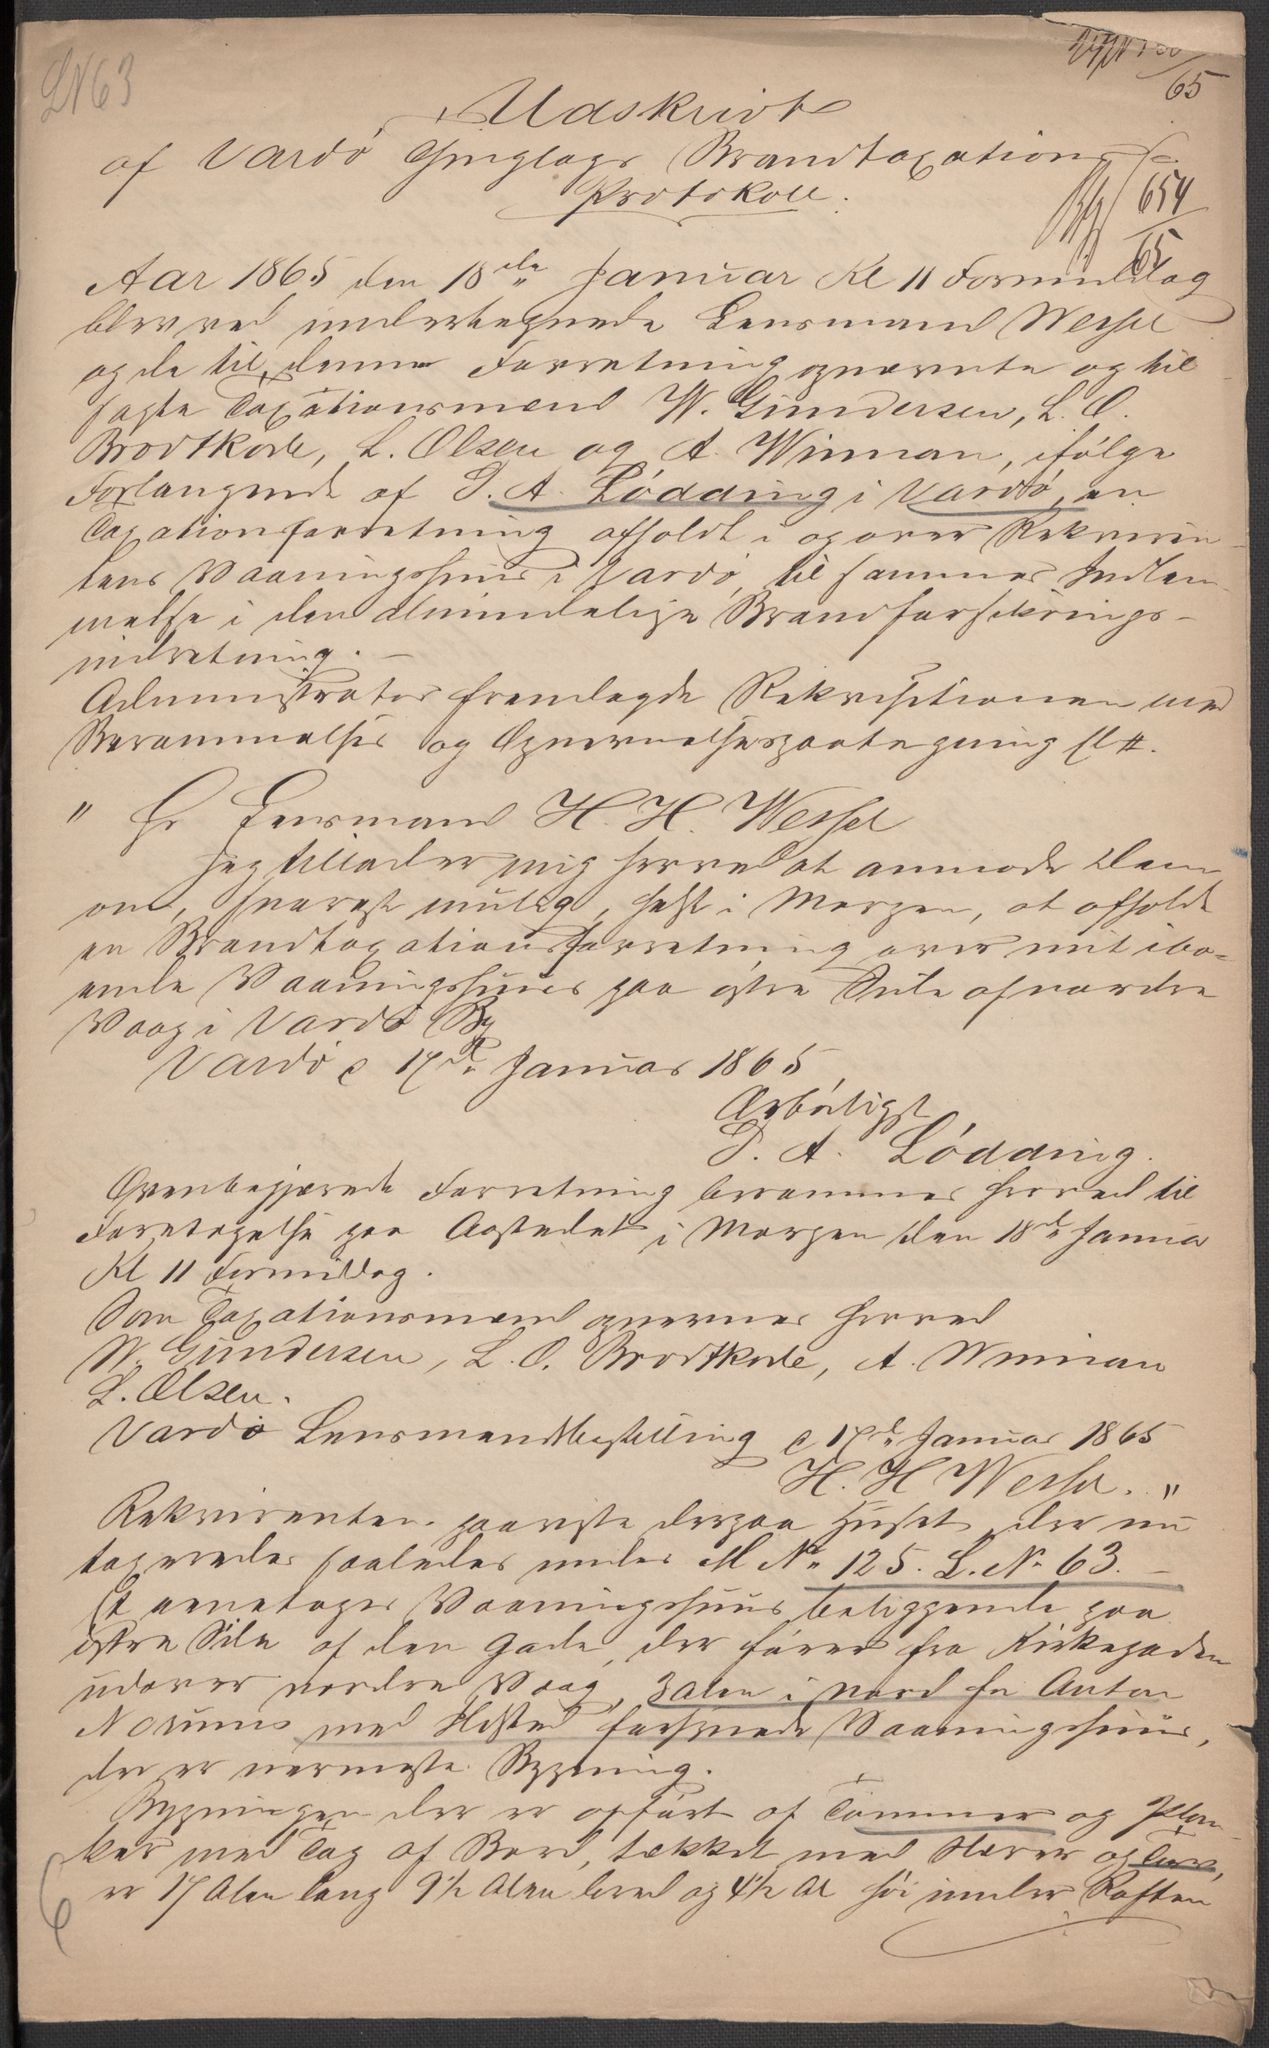 LN 63
65
Udskrivt
af Vardø Thinglags Brandtaxations
Protokoll.
654
65
Aar 1865 den 18de Januar Kl 11 Formiddag
blev ved undertegnede Lensmand Wessel
og de til denne Forretning opnævnte og til
sagte Taxationsmænd W. Gundersen, L. O.
Brodtkorb, L. Olsen og A. Winman, ifølge
Forlangende af P. A. Lødding i Vardø, en
Taxationsforretning afholdt i og over Rekviren-
tens Vaaningshuus i Vardø, til sammes Indlem-
melse i den almindelige Brandforsikrings-
indretning. –
Administrator fremlagde Rekvisitionen med
Berammelses og Opnævnelsespaategning
" Hr Lensmand H. H. Wessel
Jeg tillader mig herved at anmode Dem
om, snarest muligt, helst i Morgen, at afholde
en Brandtaxationsforretning over mit ibo-
ende Vaaningshuus paa østre Side af nordre
Vaag i Vardø By
Vardø d 17de Januar 1865
Ærbødigst
P. A. Lødding.
Ovenbegjærede Forretning berammes herved til
Foretagelse paa Aastedet i Morgen den 18de Januar
Kl 11 Formiddag.
Som Taxationsmænd opnævnes herved
W. Gundersen, L. O. Brodtkorb, A. Winman
L. Olsen.
Vardø Lensmandbestilling d 17de Januar 1865
H. H Wessel. "
Rekvirenten paaviste derpaa Huset der nu
taxeredes saaledes under M No 125. L. No 63. –
Et eenetages Vaaningshuus beliggende paa
østre Side af den Gade, der fører fra Kirkegaden
udover nordre Vaag, 3 Alen i Nord fra Anton
Norums med Ildsted forsynede Vaaningshuus,
der er nærmeste Bygning.
Bygningen der er opført af Tømmer og Plan-
ker med Tag af Bord, tækket med Næver og Torv,
er 17 Alen lang 9½ Alen bred og 4½ Al høi under Raften
6